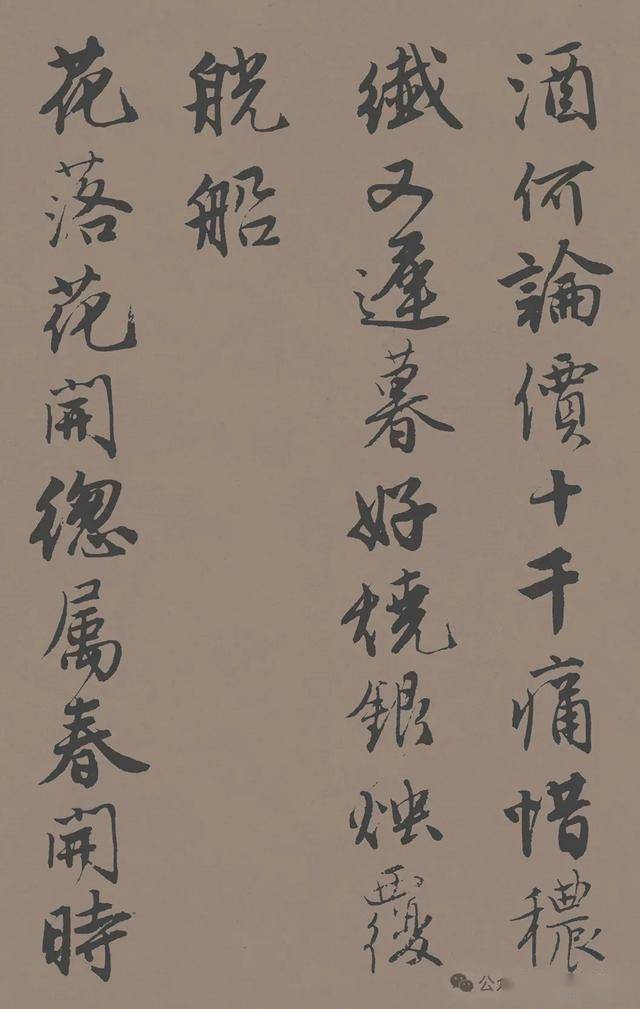 酒何論價十千痛惜穠
纖又遲暮好燒銀烛覆
觥船
花落花開總属春開時
公